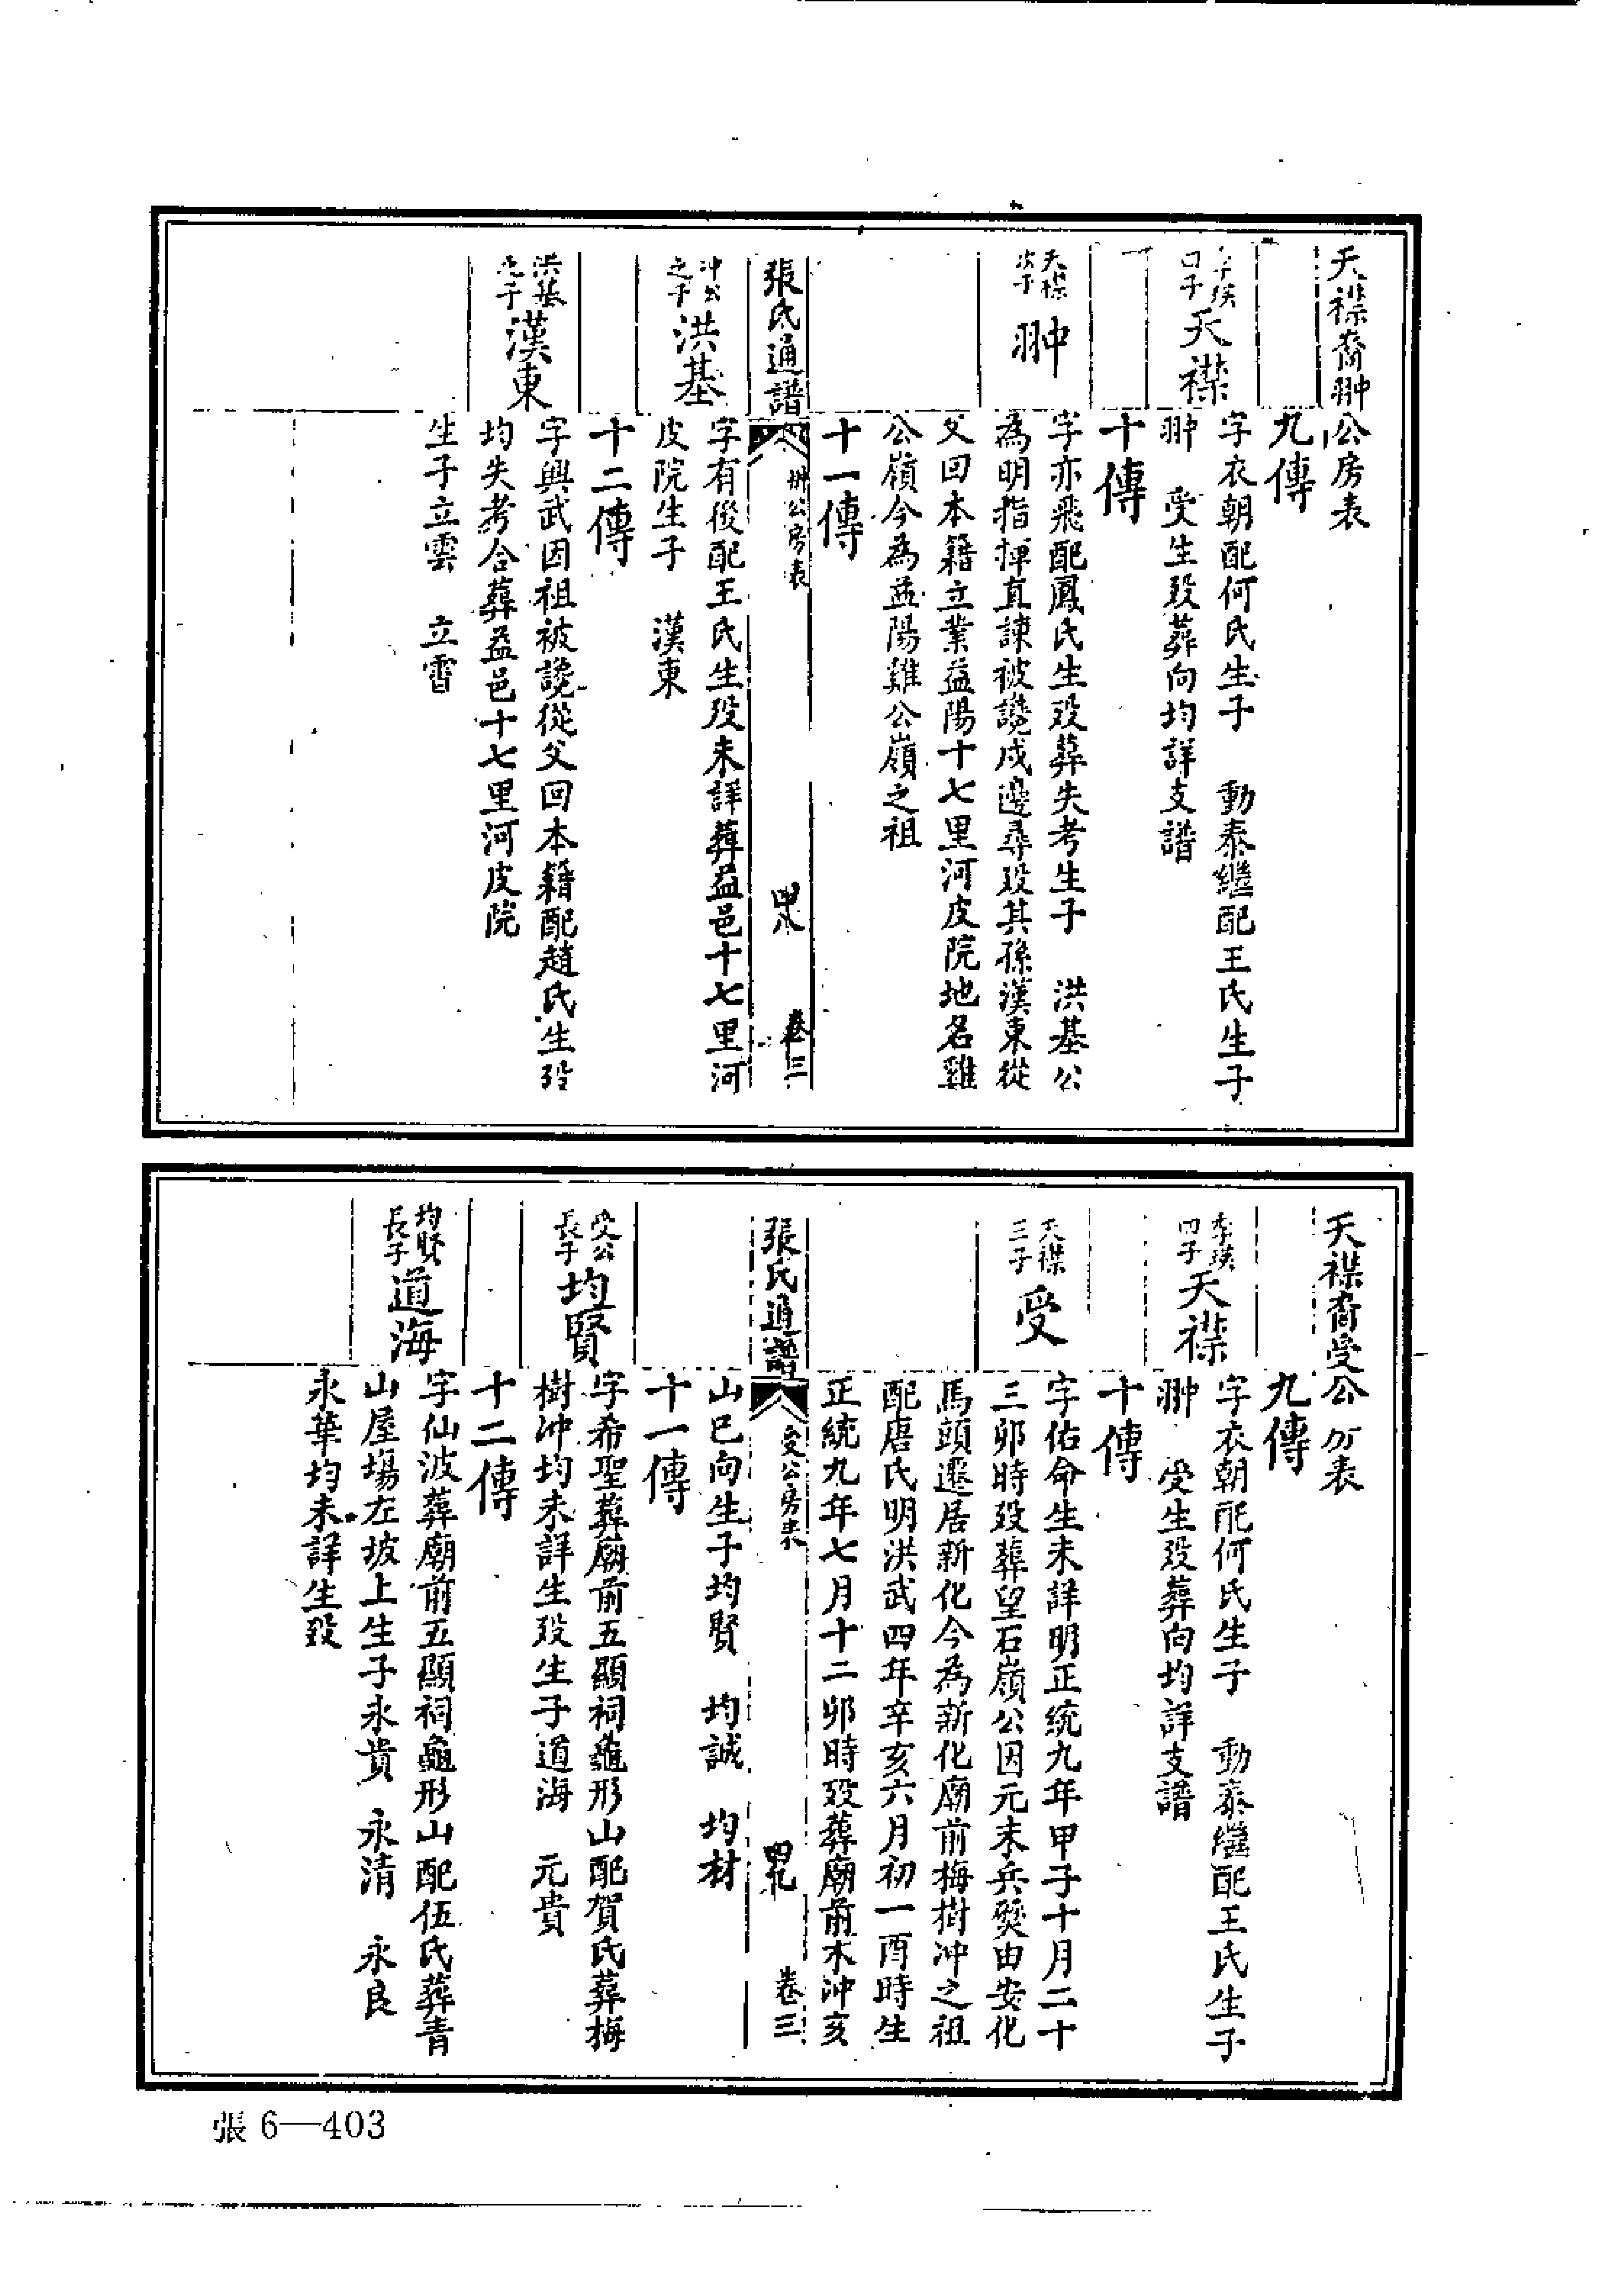 天襟裔翀公房表
九傳
季瑛四子 天襟 字衣朝配何氏生子 動泰繼配王氏生子
翀 受生歿葬向均詳支譜
十傳
天襟次子 翀 字亦飛配鳳氏生歿葬失考生子 洪基公
為明指揮直諫被讒戍邊尋歿其孫漢東從
父回本籍立業益陽十七里河皮院地名雞
公嶺今為益陽雞公嶺之祖
十一傳
張氏通譜 翀公房表 四八 卷三
冲公之子 洪基 字有後配王氏生歿未詳葬益邑十七里河
皮院生子 漢東
十二傳
洪基之子 漢東 字興武因祖被讒從父回本籍配趙氏生歿
均失考合葬益邑十七里河皮院
生子立雲 立霄
天襟裔受公房表
九傳
季瑛四子 天襟 字衣朝配何氏生子 動泰繼配王氏生子
翀 受生歿葬向均詳支譜
十傳
天襟三子 受 字佑命生未詳明正統九年甲子十月二十
三卯時歿葬望石嶺公因元末兵燹由安化
馬頭遷居新化今為新化廟前梅樹冲之祖
配唐氏明洪武四年辛亥六月初一酉時生
正統九年七月十二卯時歿葬廟前木冲亥
張氏通譜 受公房表 四九 卷三
山巳向生子均賢 均誠 均材
十一傳
受公長子 均賢 字希聖葬廟前五顯祠龜形山配賀氏葬梅
樹冲均未詳生歿生子道海 元貴
十二傳
均賢長子 道海 字仙波葬廟前五顯祠龜形山配伍氏葬青
山屋場左坡上生子永貴 永清 永良
永華均未詳生歿
張 6—403